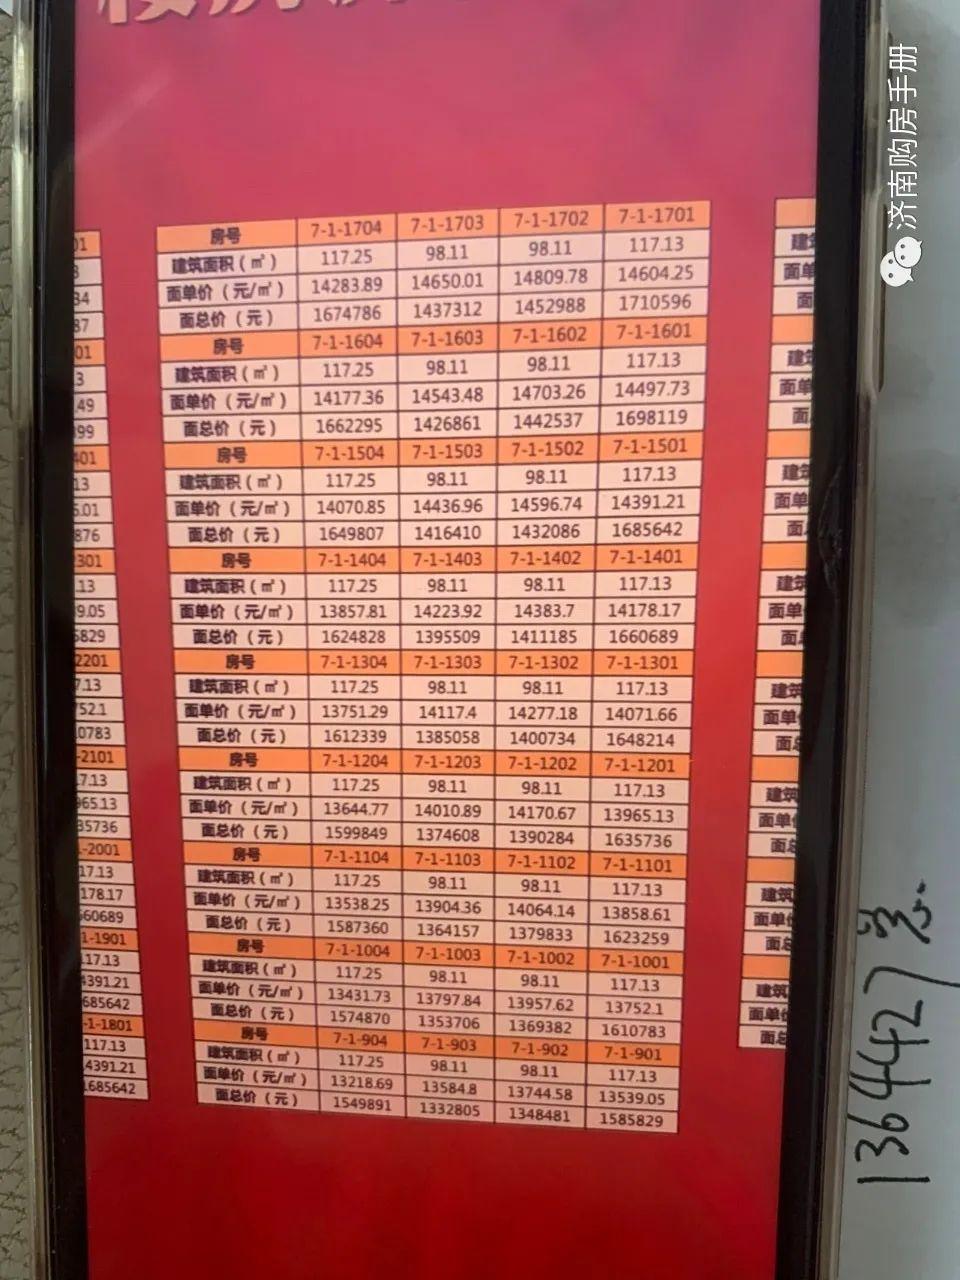 01
34
87
01
3
.49
13
5.01
876
301
.13
9.05
5829
2201
7.13
752.1
0783
-2101
17.13
965.13
35736
-2001
17.13
178.17
660689
1-1901
117.13
4391.21
685642
-1-1801
117.13
4391.21
1685642
房号 7-1-1704 7-1-1703 7-1-1702 7-1-1701
建筑面积(㎡) 117.25 98.11 98.11 117.13
面单价(元/㎡) 14283.89 14650.01 14809.78 14604.25
面总价(元) 1674786 1437312 1452988 1710596
房号 7-1-1604 7-1-1603 7-1-1602 7-1-1601
建筑面积(㎡) 117.25 98.11 98.11 117.13
面单价(元/㎡) 14177.36 14543.48 14703.26 14497.73
面总价(元) 1662295 1426861 1442537 1698119
房号 7-1-1504 7-1-1503 7-1-1502 7-1-1501
建筑面积(㎡) 117.25 98.11 98.11 117.13
面单价(元/㎡) 14070.85 14436.96 14596.74 14391.21
面总价(元) 1649807 1416410 1432086 1685642
房号 7-1-1404 7-1-1403 7-1-1402 7-1-1401
建筑面积(㎡) 117.25 98.11 98.11 117.13
面单价(元/㎡) 13857.81 14223.92 14383.7 14178.17
面总价(元) 1624828 1395509 1411185 1660689
房号 7-1-1304 7-1-1303 7-1-1302 7-1-1301
建筑面积(㎡) 117.25 98.11 98.11 117.13
面单价(元/㎡) 13751.29 14117.4 14277.18 14071.66
面总价(元) 1612339 1385058 1400734 1648214
房号 7-1-1204 7-1-1203 7-1-1202 7-1-1201
建筑面积(㎡) 117.25 98.11 98.11 117.13
面单价(元/㎡) 13644.77 14010.89 14170.67 13965.13
面总价(元) 1599849 1374608 1390284 1635736
房号 7-1-1104 7-1-1103 7-1-1102 7-1-1101
建筑面积(㎡) 117.25 98.11 98.11 117.13
面单价(元/㎡) 13538.25 13904.36 14064.14 13858.61
面总价(元) 1587360 1364157 1379833 1623259
房号 7-1-1004 7-1-1003 7-1-1002 7-1-1001
建筑面积(㎡) 117.25 98.11 98.11 117.13
面单价(元/㎡) 13431.73 13797.84 13957.62 13752.1
面总价(元) 1574870 1353706 1369382 1610783
房号 7-1-904 7-1-903 7-1-902 7-1-901
建筑面积(㎡) 117.25 98.11 98.11 117.13
面单价(元/㎡) 13218.69 13584.8 13744.58 13539.05
面总价(元) 1549891 1332805 1348481 1585829
济南购房手册
1364427